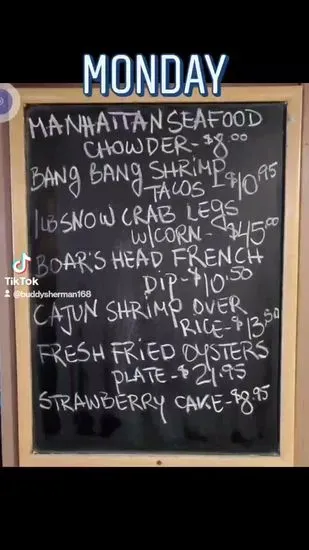 MONDAY
MANHATTAN SEAFOOD
CHOWDER-$8.00
BANG BANG SHRIMP
TACOS $10.95
1LB SNOW CRAB LEGS
W/CORN-$45.00
BOAR'S HEAD FRENCH
DIP-$10.50
CAJUN SHRIMP OVER
RICE-$13.50
FRESH FRIED OYSTERS
PLATE-$21.95
STRAWBERRY CAKE-$8.95
TikTok
@buddysherman168